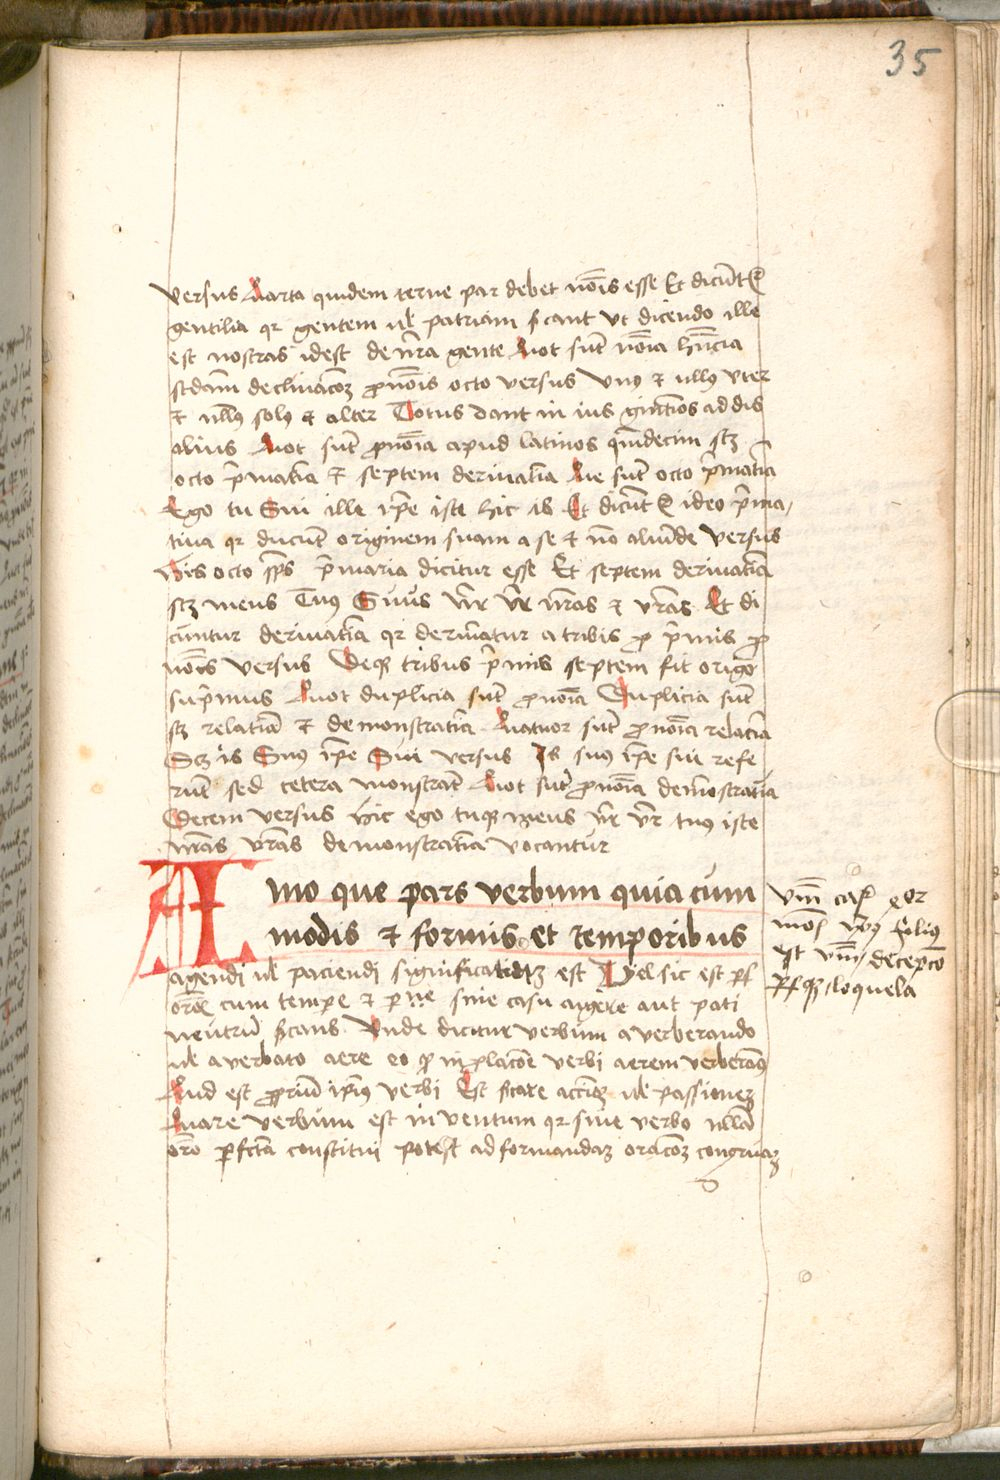 35
versus Quarta quidem terne par debet nōis esse Et dicūt᷑
gentilia qr gentem ul patriam ſcant Ut dicendo ille
est nostras idest de nr̄a gente Quot sūt nōīa hn̄cia
scdam declinacōēz pronōīs octo versus Unus et ullus uter
et nullus solus et alter Totus dant in ius gīntiōs ad dis
alius Quot sūt pronōīa apud latinos quīdecim scz
octo p̄mativa et septem derivativa Que sūt octo p̄mativa
Ego tu Sui ille ip̄e iste hic is Et dicūt᷑ ideo p̄ma
tiva qr ducunt originem suam a se et nō aliunde versus
His octo sp̄s p̄maria dicitur esse Et septem derivativa
scz meus Tuus Suus nr̄ vr̄ nr̄as et vr̄as Et di
cuntur derivativa qr derivātur a tribus p̄mis pro
nōīs versus Deque tribus p̄mis septem fit origo
sup̄mus Quot duplicia sūt pronōīa Duplicia sunt
scz relativa et demonstrativa Quatuor sūt pronōīa relativa
Scz is Suus ip̄e Sui versus Is suus ip̄e sui refe
runt sed cetera monstrant Quot sūt pronōīa demōstrativa
Decem versus hic ego tuque meus nr̄ vr̄ tuus iste
nr̄as vr̄as demonstrativa vocantur
Amo que pars verbum quia cum
modis et formis et temporibus
agendi ul paciendi significativuz est Vel sic est pars
orōīs cum tempore et persone sine casu agere aut pati
neutrum ſcans Unde dicitur verbum a verberando
ul a verbato aere eo quod in prolacōe verbi aerem verberamus
Quid est proprium ip̄ius verbi Est ſcare accōēz ul passionez
Quare verbum est inventum qr sine verbo nulla
orō perfecta constitui potest ad formandaz oracōēz congruaz
est verbum decepcō
loquela